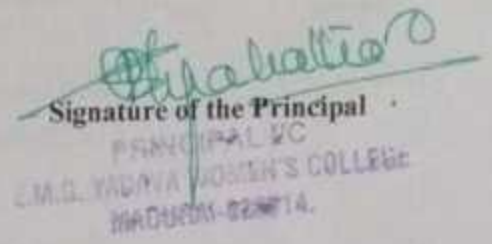 Signature of the Principal
PRINCIPAL I/C
E.M.G. YADAVA WOMEN'S COLLEGE
MADURAI-625 014.